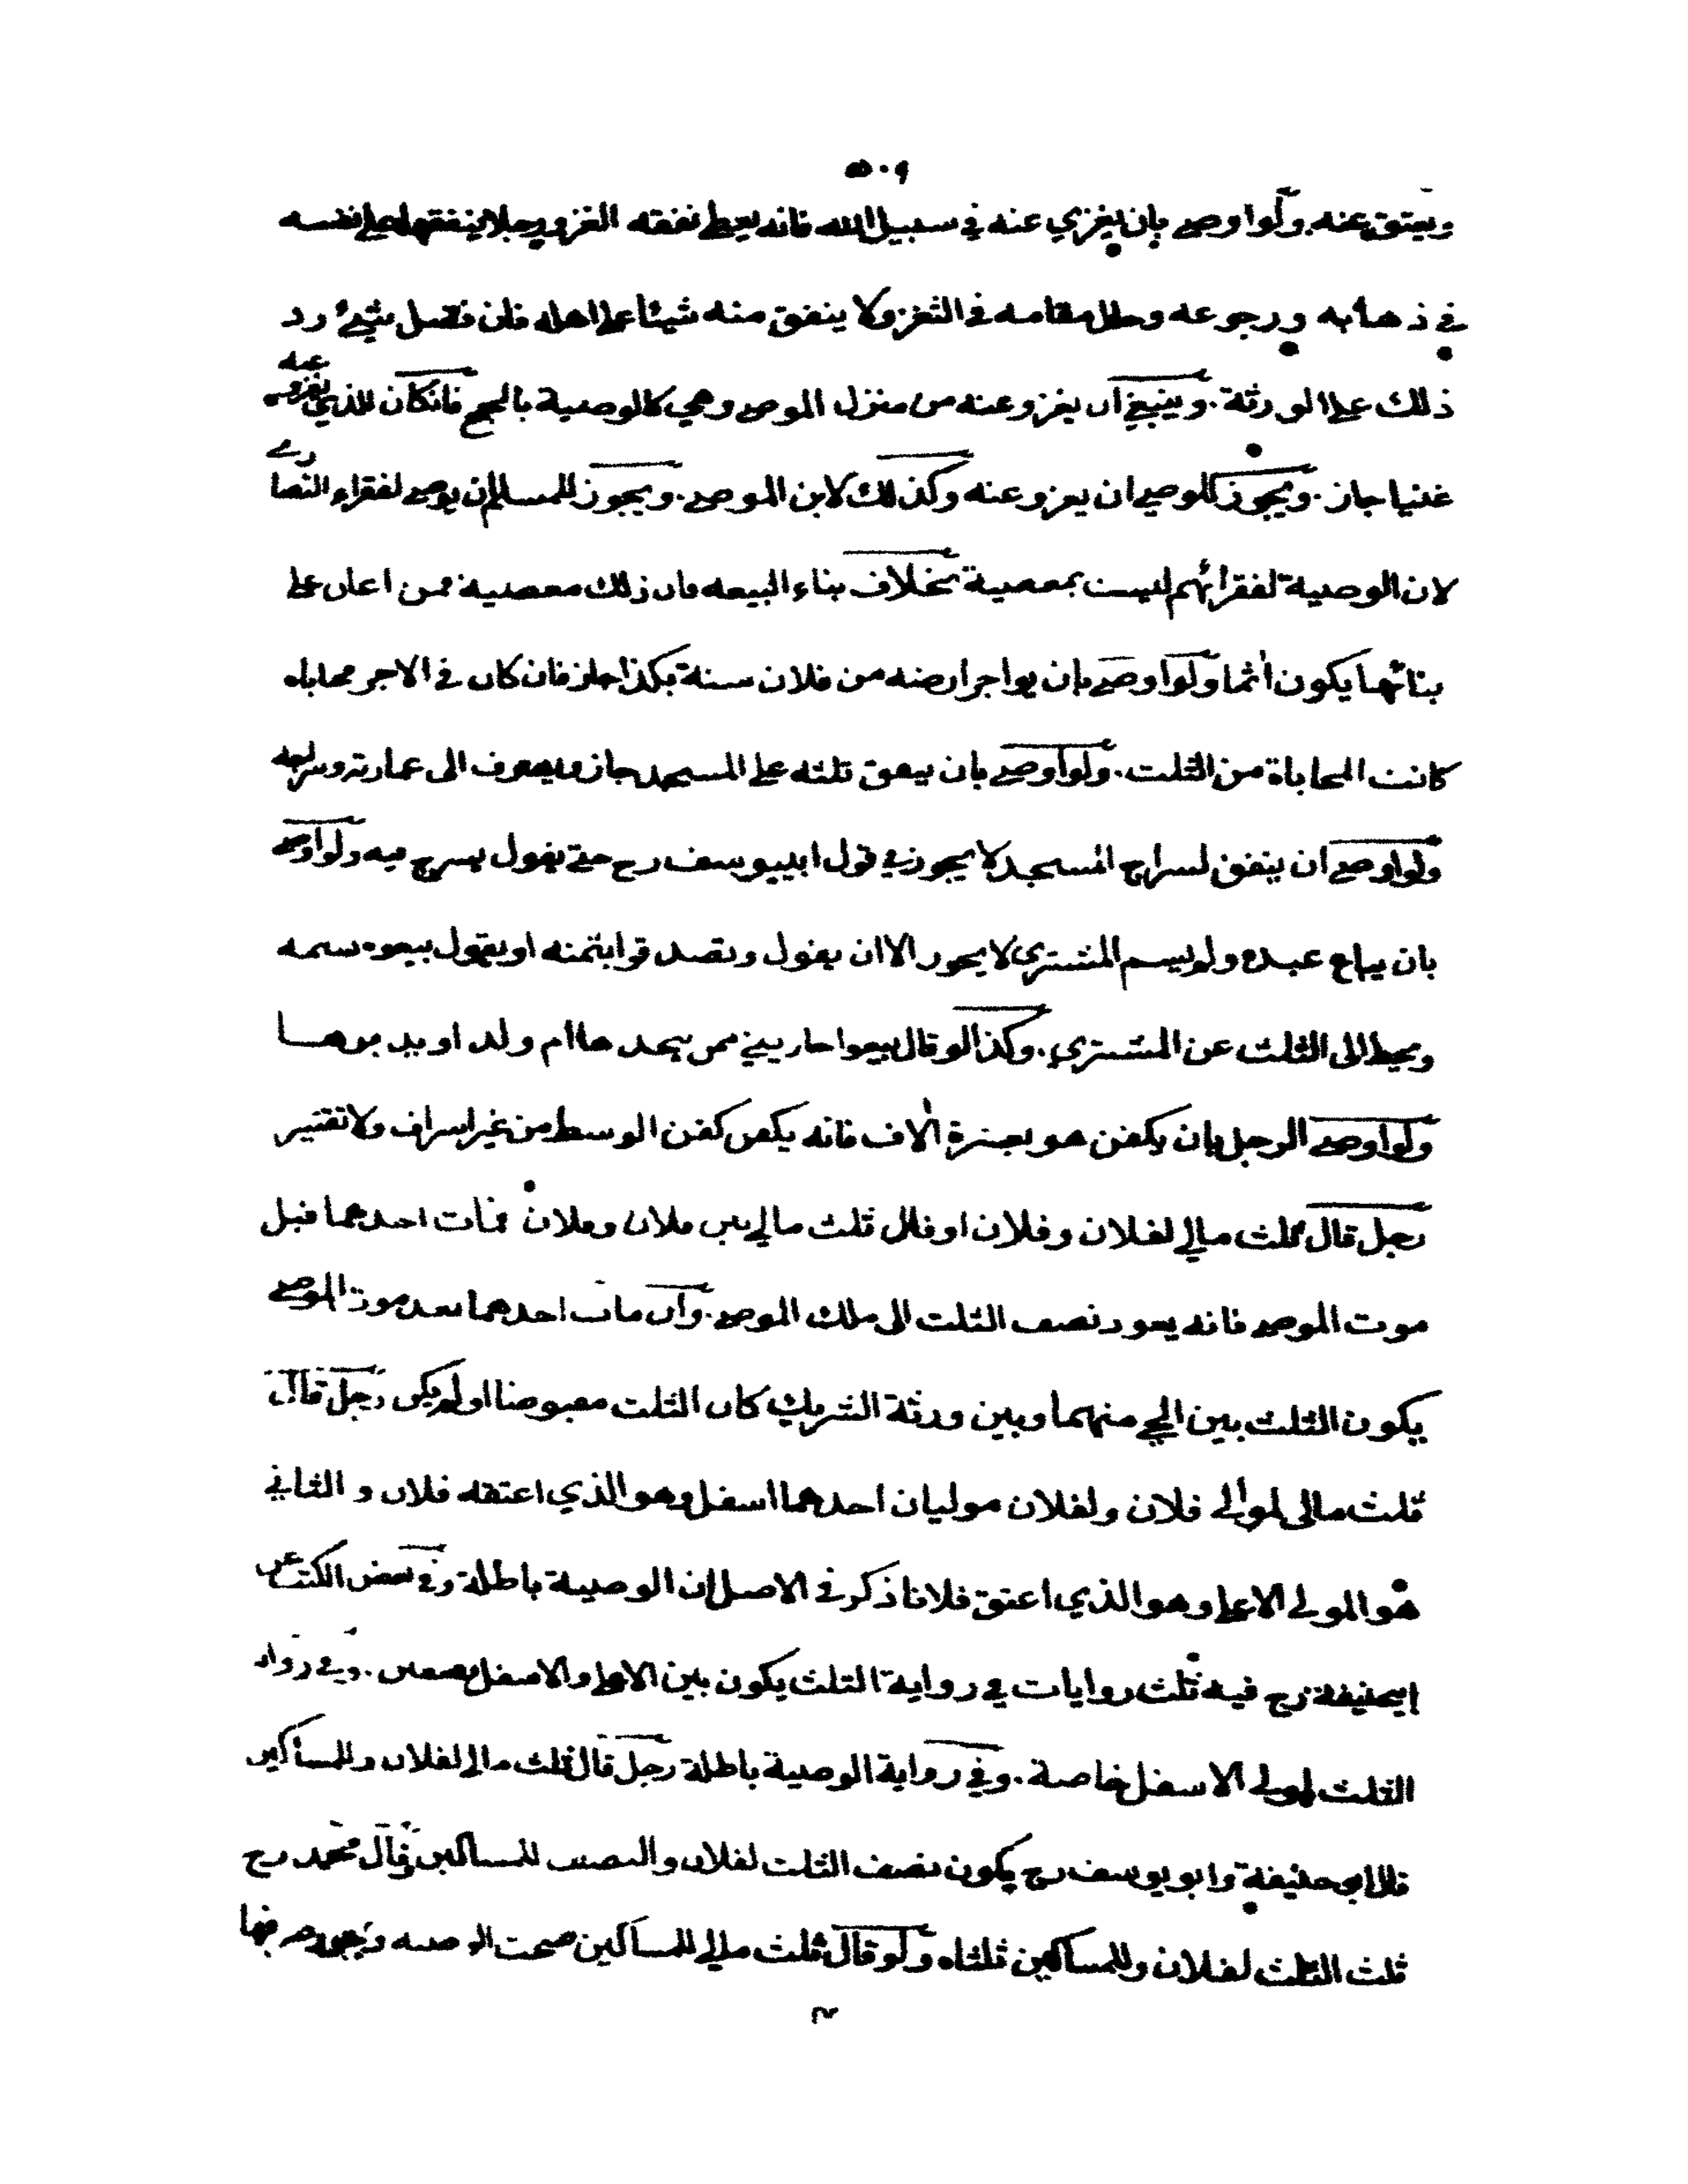 ٥٠٩
ويعتق عنه ولو اوصى بان يغزي عنه في سبيل الله فانه يعطى نفقه الغزو رجلا ينفقها على نفسه
في ذهابه ورجوعه وحال مقامه في الثغر ولا ينفق منه شيئا على اهله فان فضل شيئ رد
ذلك على الورثة . وينبغي ان يغزو عنه من منزل الموصى وهي كالوصية بالحج فان كان للذي يغزو عنه
غنيا جاز . ويجوز للوصي ان يغزو عنه وكذلك لابن الموصى . ويجوز للمسلم ان يوصى لفقراء النصارى
لان الوصية لفقرائهم ليست بمعصية بخلاف بناء البيعه فان ذلك معصية فمن اعان على
بنائها يكون اثما ولو اوصى بان يواجر ارضه من فلان سنة بكذا جاز فان كان في الاجر محاباه
كانت المحاباة من الثلث . ولو اوصى بان ينفق ثلثه على المسجد جاز ويصرف الى عمارته وسراجه
ولو اوصى ان ينفق لسراج المسجد لا يجوز في قول ابي يوسف رح حتى يقول يسرج فيه ولو اوصى
بان يباع عبده ولم يسم المشتري لا يجوز الا ان يقول وتصدقوا بثمنه او يقول بيعوه سمه
ويحط الى الثلث عن المشتري . وكذا لو قال بيعوا جاريتي ممن يتخذها ام ولد او يدبرها
ولو اوصى الرجل بان يكفن هو بعشرة الاف فانه يكفن كفن الوسط من غير اسراف ولا تقتير
رجل قال ثلث مالي لفلان وفلان او قال ثلث مالي بين فلان وفلان فمات احدهما قبل
موت الموصى فانه يعود نصف الثلث الى ملك الموصى . وان مات احدهما بعد موت الموصى
يكون الثلث بين الحي منهما وبين ورثة الشريك كان الثلث مقبوضا او لم يكن رجل قال
ثلث مالى لموالي فلان ولفلان موليان احدهما اسفل وهو الذي اعتقه فلان و الثاني
هو المولى الاعلى وهو الذي اعتق فلانا ذكر في الاصل ان الوصية باطلة وفي بعض الكتب عن
ابيحنيفة رح فيه ثلث روايات في رواية الثلث يكون بين الاعلى والاسفل نصفين . وفي رواية
الثلث لمولى الاسفل خاصة . وفي رواية الوصية باطلة رجل قال ثلث مالى لفلان وللمساكين
قال ابو حنيفة وابو يوسف رح يكون نصف الثلث لفلان والنصف للمساكين وقال محمد رح
ثلث الثلث لفلان وللمساكين ثلثاه ولو قال ثلث مالي للمساكين صحت الوصيه ويجوز صرفها